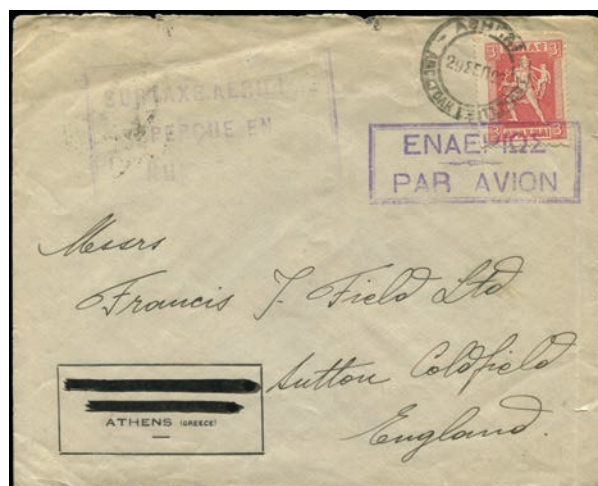 SURTAXE AERIENNE
PERÇUE EN
ΑΘΗΝΑΙ
29 ΣΕΠ
3 ΕΛΛΑΣ 3
3 ΔΡΑΧΜΑΙ 3
ΕΝΑΕΡΙΩΣ
PAR AVION
Messrs
Francis J. Field Ltd
Sutton Coldfield
England.
ATHENS (GREECE)